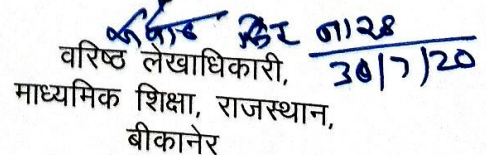 30/7/20
वरिष्ठ लेखाधिकारी,
माध्यमिक शिक्षा, राजस्थान,
बीकानेर